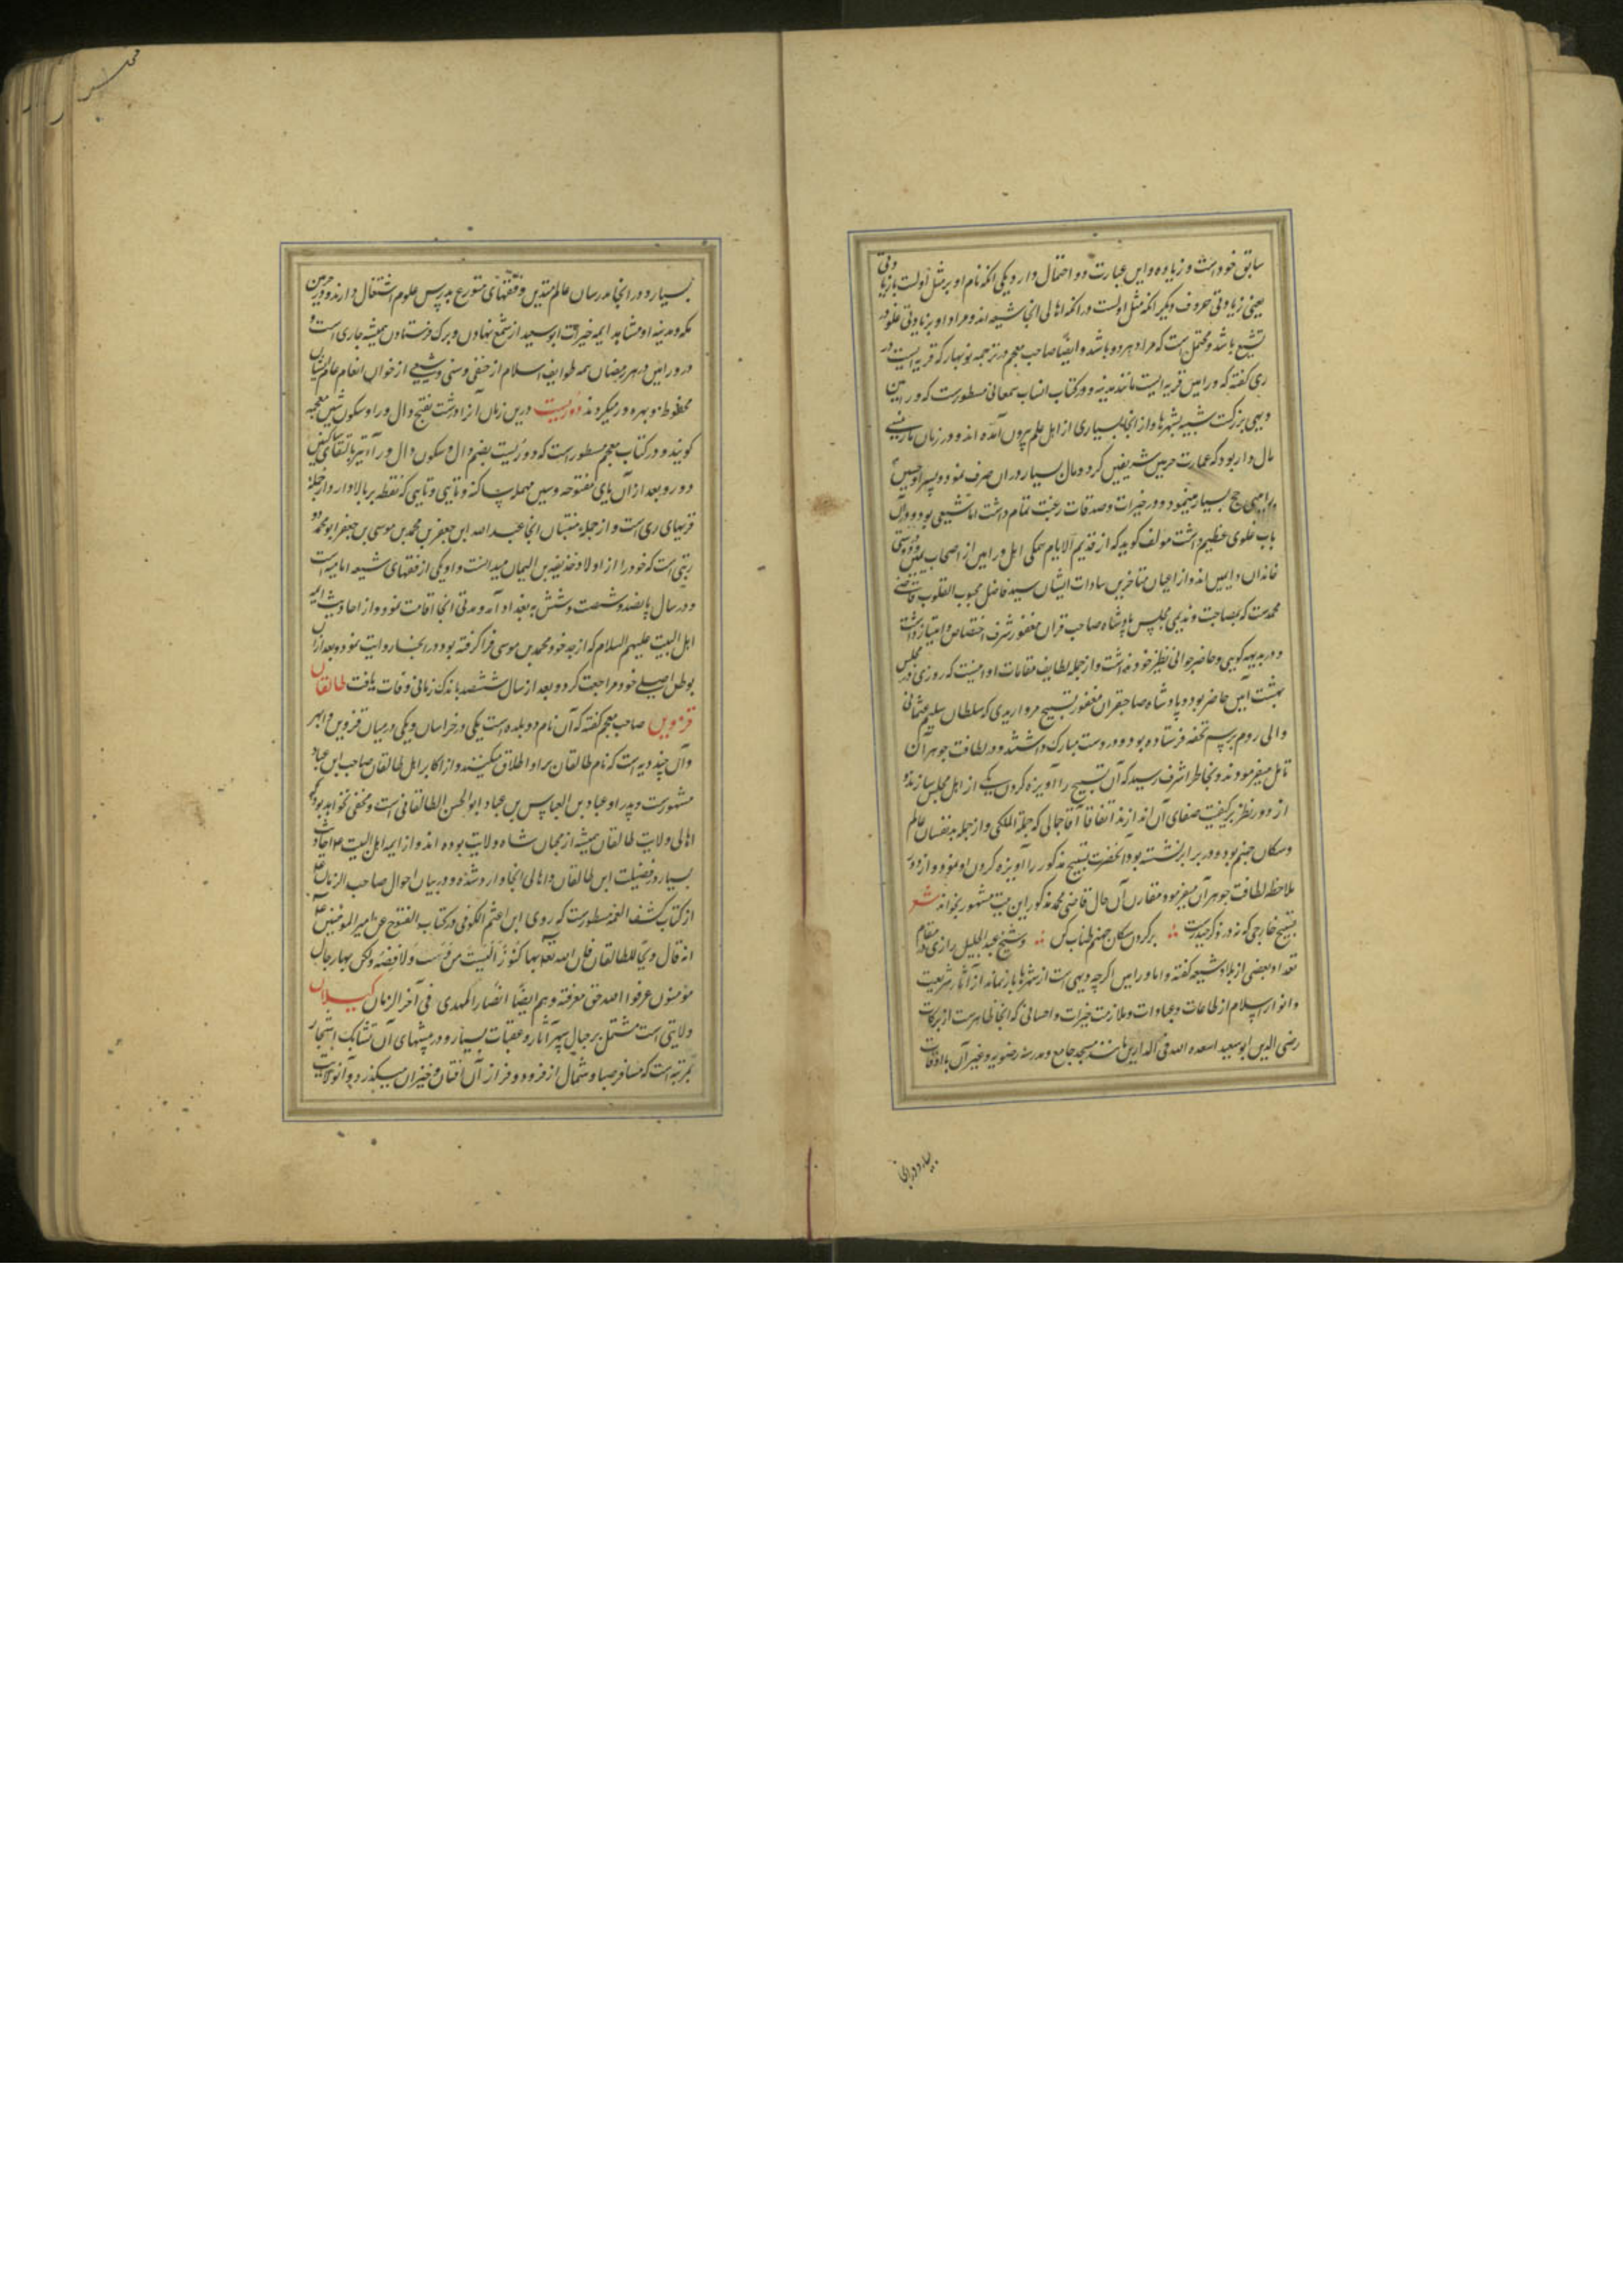 سابق خود است و زیاده و این عبارت دو احتمال دارد یکی آنکه نام او بر مثل اولست با زیادتی
یعنی زیادتی حروف و دیگر آنکه مثل اولست در آنکه اهالی آنجا شیعه اند و مراد او بزیادتی غلو در
تشیع باشد و محتمل است که مراد هر دو باشد و ایضا صاحب معجم در ترجمه نوبهار که قریه ایست در
ری گفته که ورامین قریه ایست مانند مدینه و در کتاب انساب سمعانی مسطورست که ورامین
دیهی بزرگست شبیه بشهرها و از آنجا بسیاری از اهل علم بیرون آمده اند و در زمان ما رئیسی
مال دار بود که عمارت حرمین شریفین کرد و مال بسیار در آن صرف نمود و پسر او حسین
ورامینی حج بسیار مینمود و در خیرات و صدقات رغبت تمام داشت اما شیعی بود و در آن
باب غلوی عظیم داشت مولف گوید که از قدیم الایام همگی اهل ورامین از اصحاب یمین و دوستی
خاندان و ایمین اند و از اعیان متاخرین سادات ایشان سید فاضل محبوب القلوب قاضی
محمدست که بمصاحبت و ندیمی مجلس پادشاه صاحب قران مغفور شرف اختصاص و امتیاز داشت
و در بدیهه گویی و حاضر جوابی نظیر خود نداشت و از جمله لطایف مقامات او اینست که روزی در مجلس
بهشت آیین حاضر بود و پادشاه صاحبقران مغفور تسبیح مرواریدی که سلطان سلیم عثمانی
والی روم برسم تحفه فرستاده بود در دست مبارک داشتند و در لطافت جوهر آن
تامل میفرمودند و بخاطر اشرف رسید که آن تسبیح را آویزه گردن یکی از اهل مجلس سازند و
از دور نظر بر کیفیت صفای آن اندازند اتفاقا آقا جمالی که جبلة الملکی و از جمله بدنفسان عالم
و سگان جهنم بود و در برابر نشسته بود آنحضرت تسبیح مذکور را آویزه گردن او نمود و از دور
ملاحظه لطافت جوهر آن میفرمود مقارن آن حال قاضی محمد مذکور این بیت مشهور بخواند شعر
تسبیح خارجی که نه در ذکر حیدرست ∴ بر گردن سگان جهنم طناب کن ∴ و شیخ عبدالجلیل رازی در مقام
تعداد بعضی از بلاد شیعه گفته و اما ورامین اگرچه دیهی است از شهرها باز نماند از آثار شریعت
و انوار اسلام از طاعات و عبادات و ملازمت خیرات و احسانی که آنجا ظاهرست از برکات
رضی الدین ابوسعید اسعده الله فی الدارین مانند مسجد جامع و مدرسه رضویه و غیر آن با اوقاف
بسیار و در آنجا
بسیار و در آنجا مدرسان عالم متدین و فقهای متورع بدرس علوم اشتغال دارند و در حرمین
مکه و مدینه و مشاهد ایمه خیرات ابوسعید از شمع نهادن و برک فرستادن همیشه جاری است و
در ورامین در هر رمضان همه طوایف اسلام از حنفی و سنی و شیعی از خوان انعام عام ایشان
محظوظ و بهره ور میگردند دوریست درین زمان آنرا درشت بفتح دال و را و سکون شین معجمه
گویند و در کتاب معجم مسطور است که دوریست بضم دال و سکون واو و را نیز بالتقای ساکنین
دو رو بعد از آن یای مفتوحه و سین مهمله ساکنه و تایی و تایی که نقطه بر بالا دارد از جمله
قریهای ری است و از جمله منتسبان آنجا عبد الله ابن جعفر بن محمد بن موسی بن جعفر ابو محمد دو
ریستی است که خود را از اولاد حذیفة بن الیمان میدانست و او یکی از فقهای شیعه امامیه است
و در سال پانصد و شصت و شش به بغداد آمد و مدتی آنجا اقامت نمود و از احادیث ائمه
اهل البیت علیهم السلام که از جد خود محمد بن موسی فرا گرفته بود در آنجا روایت نمود و بعد از آن
بوطن اصلی خود مراجعت کرد و بعد از سال ششصد باندک زمانی وفات یافت طالقان
قزوین صاحب معجم گفته که آن نام دو بلده است یکی در خراسان و یکی در میان قزوین و ابهر
و آن چند دیه است که نام طالقان بر او اطلاق میکنند و از اکابر اهل طالقان صاحب ابن عباد
مشهورست و پدر او عباد بن العباس بن عباد ابوالحسن الطالقانی است و مخفی نخواهد بود که
اهالی ولایت طالقان همیشه از محبان شاه ولایت بوده اند و از ایمه اهل البیت ع احادیث
بسیار در فضیلت این طالقان و اهالی آنجا وارد شده و در بیان احوال صاحب الزمان ع
از کتاب کشف الغمه مسطورست که روی ابن اعثم الکوفی در کتاب الفتوح عن امیر المومنین ع
انه قال ویحا للطالقان فان الله تعالی بها کنوزا لیست من ذهب و لا فضة و لکن بها رجال
مؤمنون عرفوا الله حق معرفته و هم ایضا انصار المهدی فی آخر الزمان گیلان
ولایتی است مشتمل بر جبال سپهر آثار و عقبات بسیار و در بیشهای آن تشابک اشجار
بمرتبه است که مسافر صبا و شمال از فرود و فراز آن افتان و خیزان میگذرد و آنولایت